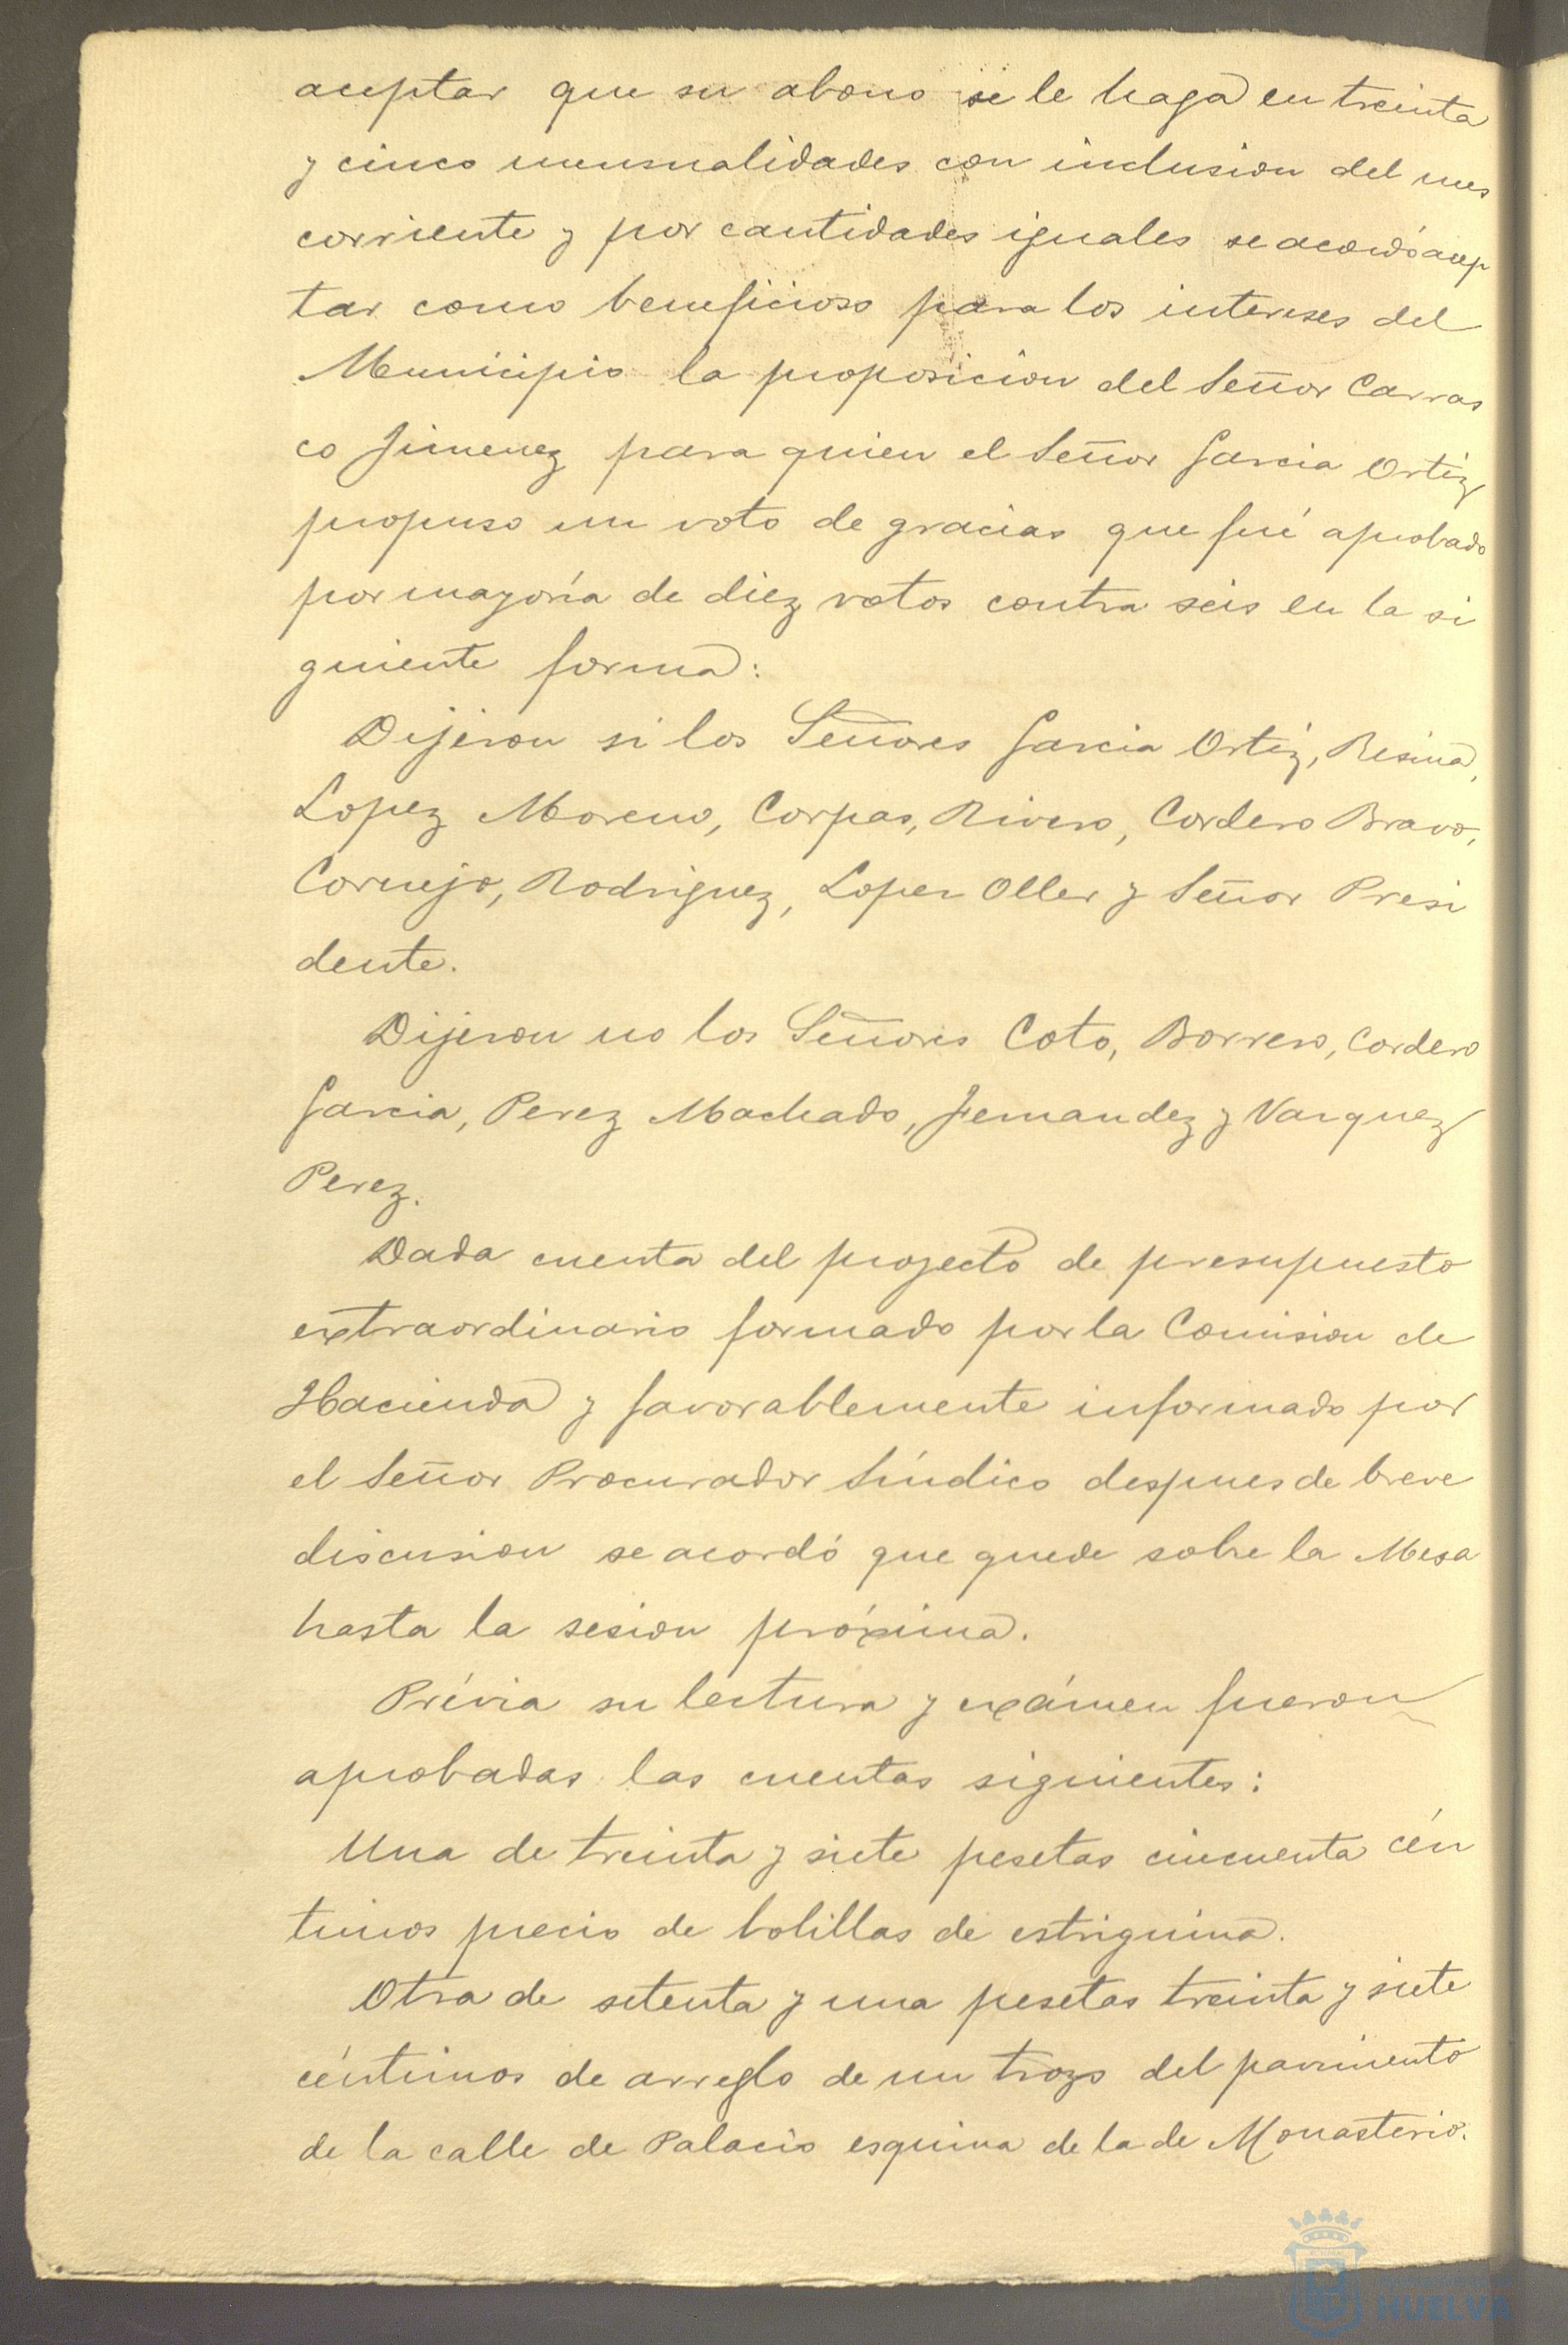 aceptar que su abono se le haga en treinta
y cinco mensualidades con inclusion del mes
corriente y por cantidades iguales se acordó acep
tar como beneficioso para los intereses del
Municipio la proposicion del Señor Carras
co Jimenez para quien el Señor Garcia Ortiz
propuso un voto de gracias que fué aprobado
por mayoría de diez votos contra seis en la si
guiente forma:
Dijeron si los Señores Garcia Ortiz, Resina,
Lopez Moreno, Corpas, Rivero, Cordero Bravo,
Cornejo, Rodriguez, Lopez Oller y Señor Presi
dente.
Dijeron no los Señores Coto, Borrero, Cordero
Garcia, Perez Machado, Fernandez y Vazquez
Perez.
Dada cuenta del proyecto de presupuesto
extraordinario formado por la Comision de
Hacienda y favorablemente informado por
el Señor Procurador Síndico despues de breve
discusion se acordó que quede sobre la Mesa
hasta la sesion próxima.
Prévia su lectura y exámen fueron
aprobadas las cuentas siguientes:
Una de treinta y siete pesetas cincuenta cén
timos precio de bolillas de estriquina.
Otra de setenta y una pesetas treinta y siete
céntimos de arreglo de un trozo del pavimento
de la calle de Palacio esquina de la de Monasterio.
HUELVA